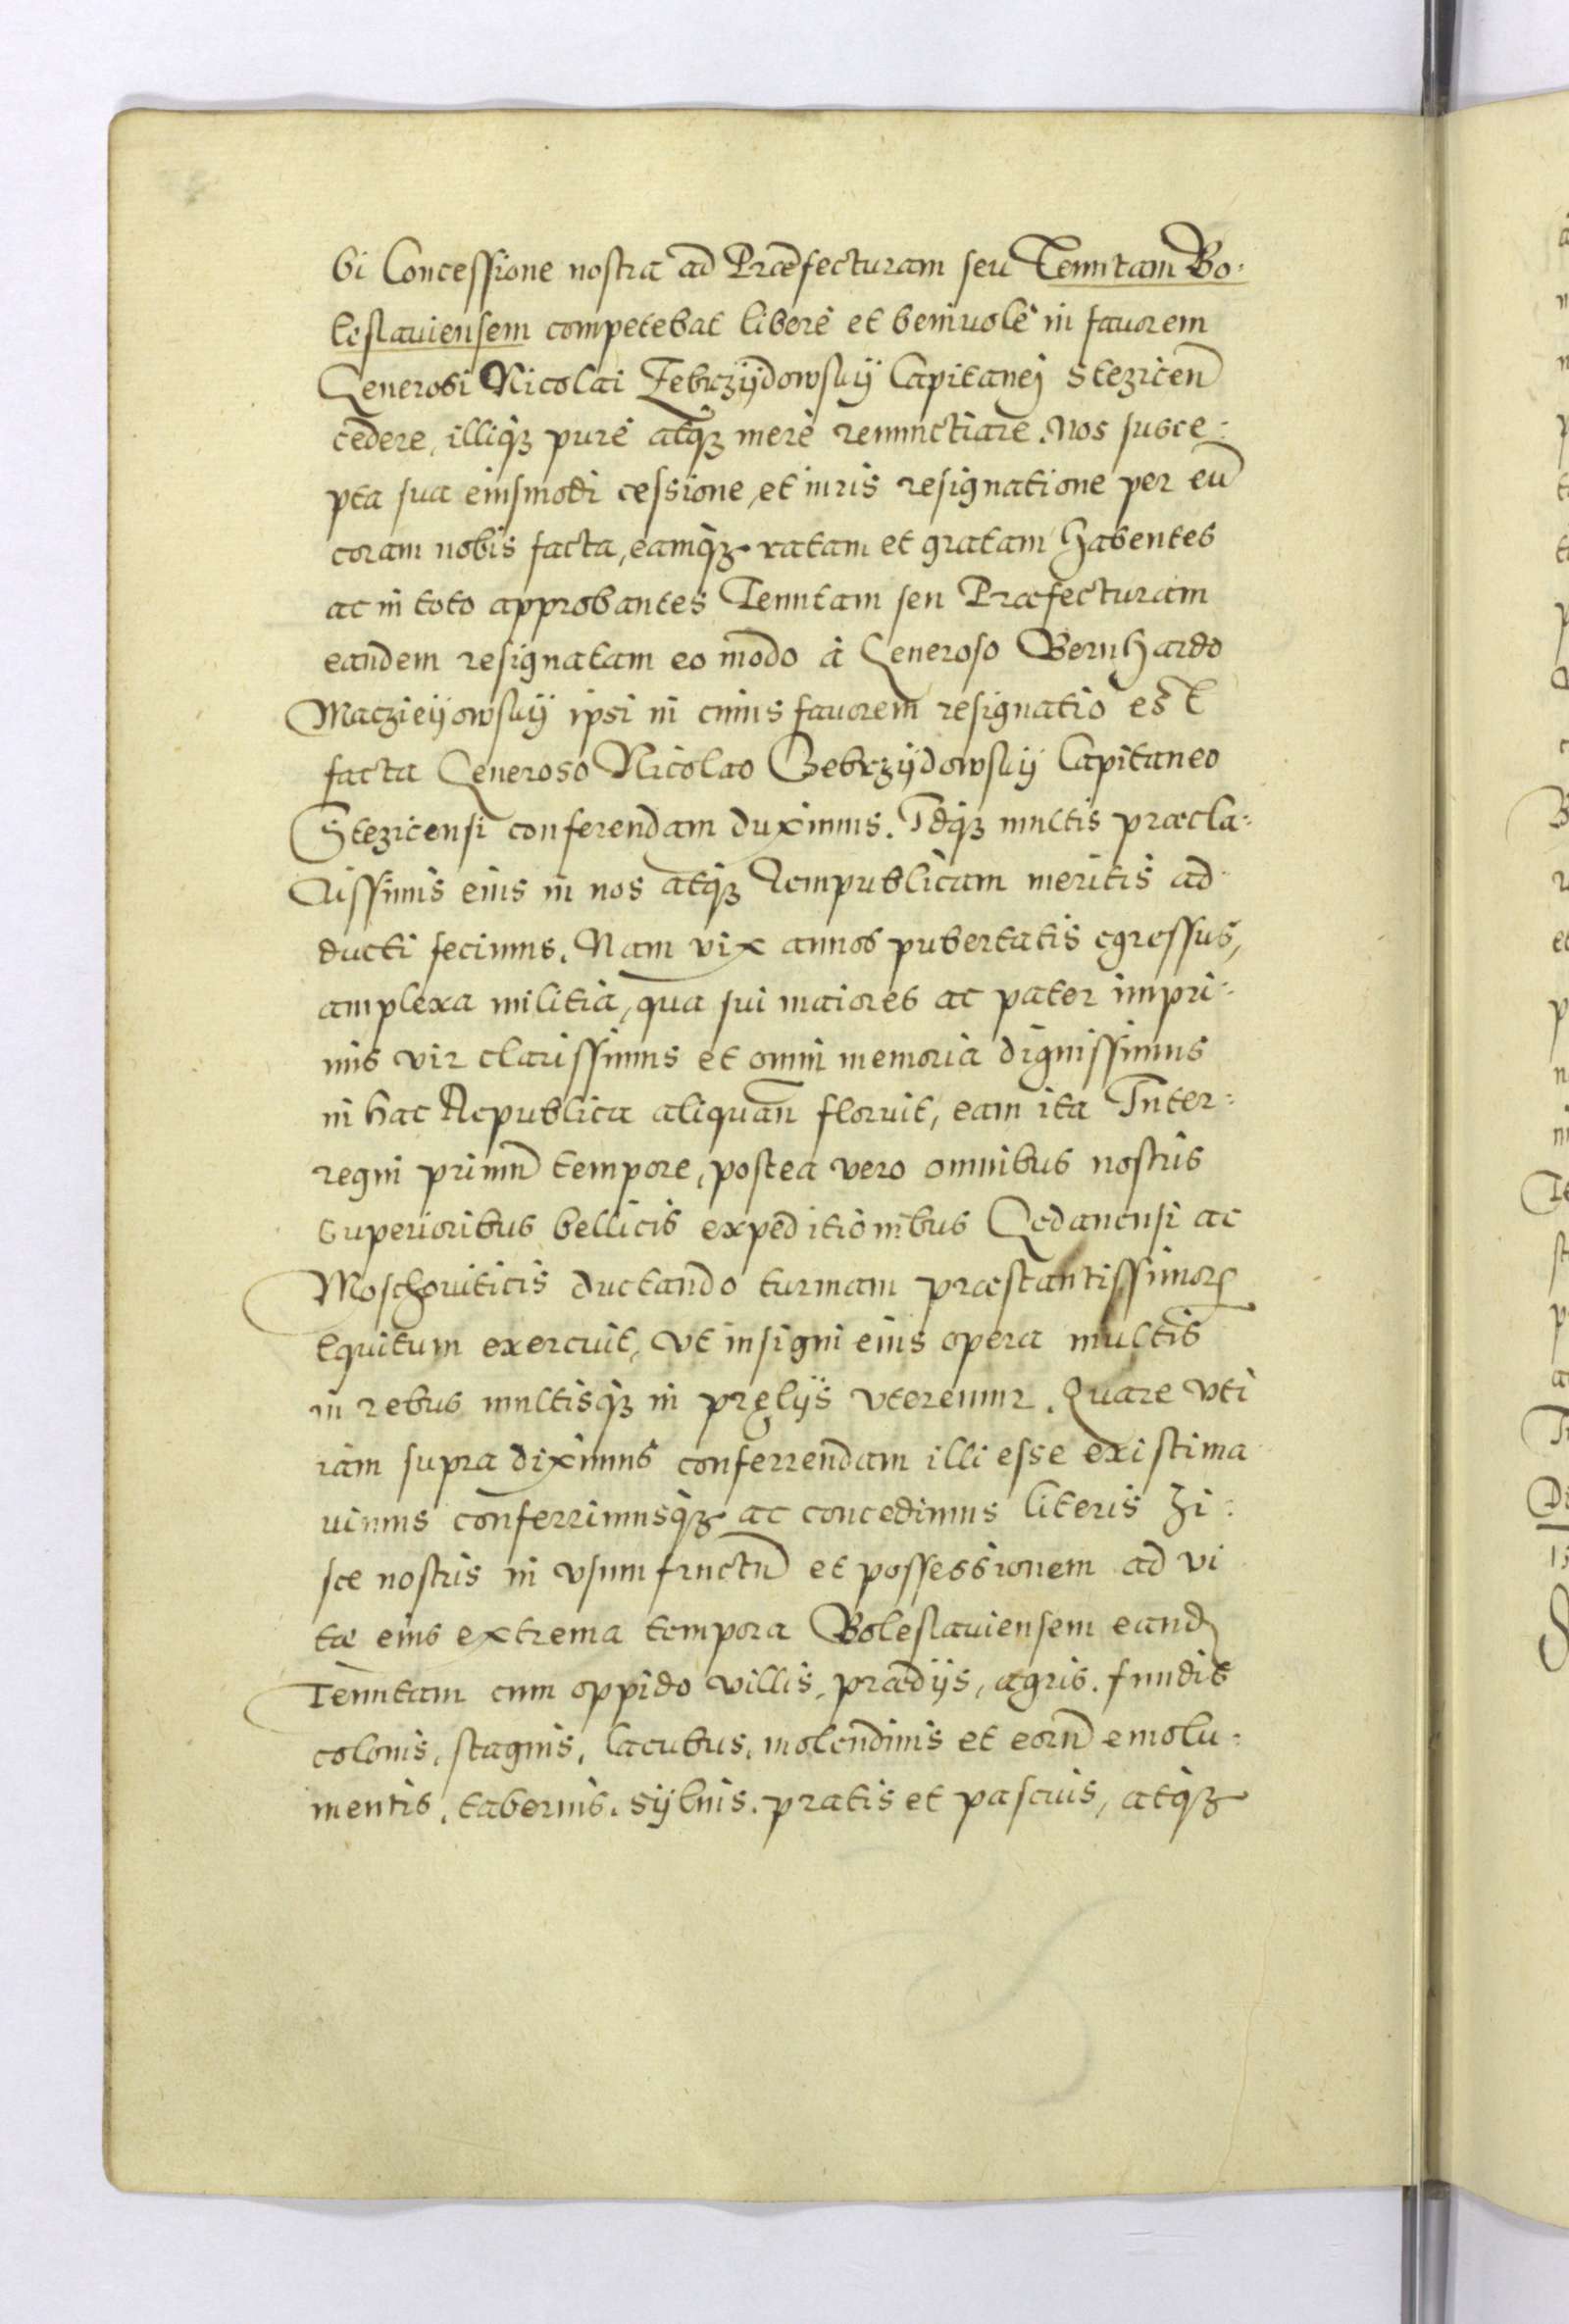 bi Concessione nostra ad Præfecturam seu Tenutam Bo:
leslauiensem competebat liberè et beniuolè in fauorem
Generosi Nicolai Zebrzÿdowskÿ Capitanej Stezicen̄
cedere, illiq́ꝫ purè atq́ꝫ merè renunctiare. Nos susce:
pta sua eiusmodi cessione, et iuris resignatione per eū
coram nobis facta, eamq́ꝫ ratam et gratam habentes
ac in toto approbantes Tenutam seu Præfecturam
eandem resignatam eo modo à Generoso Bernhardo
Maczieÿowskÿ ipsi in cuius fauorem resignatio est
facta Generoso Nicolao Zebrzÿdowskÿ Capitaneo
Stezicensi conferendam duximus. Idq́ꝫ multis præcla:
rissimis eius in nos atq́ꝫ Rempublicam meritis ad
ducti fecimus. Nam vix annos pubertatis egressus,
amplexa militia, qua sui maiores ac pater impri:
mis vir clarissimus et omni memoria dignissimus
in hac Republica aliquan̄ floruit, eam ita Inter:
regni primū tempore, postea vero omnibus nostris
superioribus bellicis expeditionibus Gedanensi ac
Moschouiticis ductando turmam præstantissimorꝝ
Equitum exercuit, vt insigni eius opera multis
in rebus multisq́ꝫ in pręlÿs vteremur. Quare vti
iam supra diximus conferrendam illi esse existima
uimus conferrimusq́ꝫ ac concedimus literis hi:
sce nostris in vsumfructū et possessionem ad vi
tæ eius extrema tempora Boleslauiensem eand̨
Tenutam cum oppido villis, prædÿs, agris. fundis
colonis, stagnis, lacubus, molendinis et eorū emolu:
mentis, tabernis. sÿluis. pratis et pascuis, atq́ꝫ